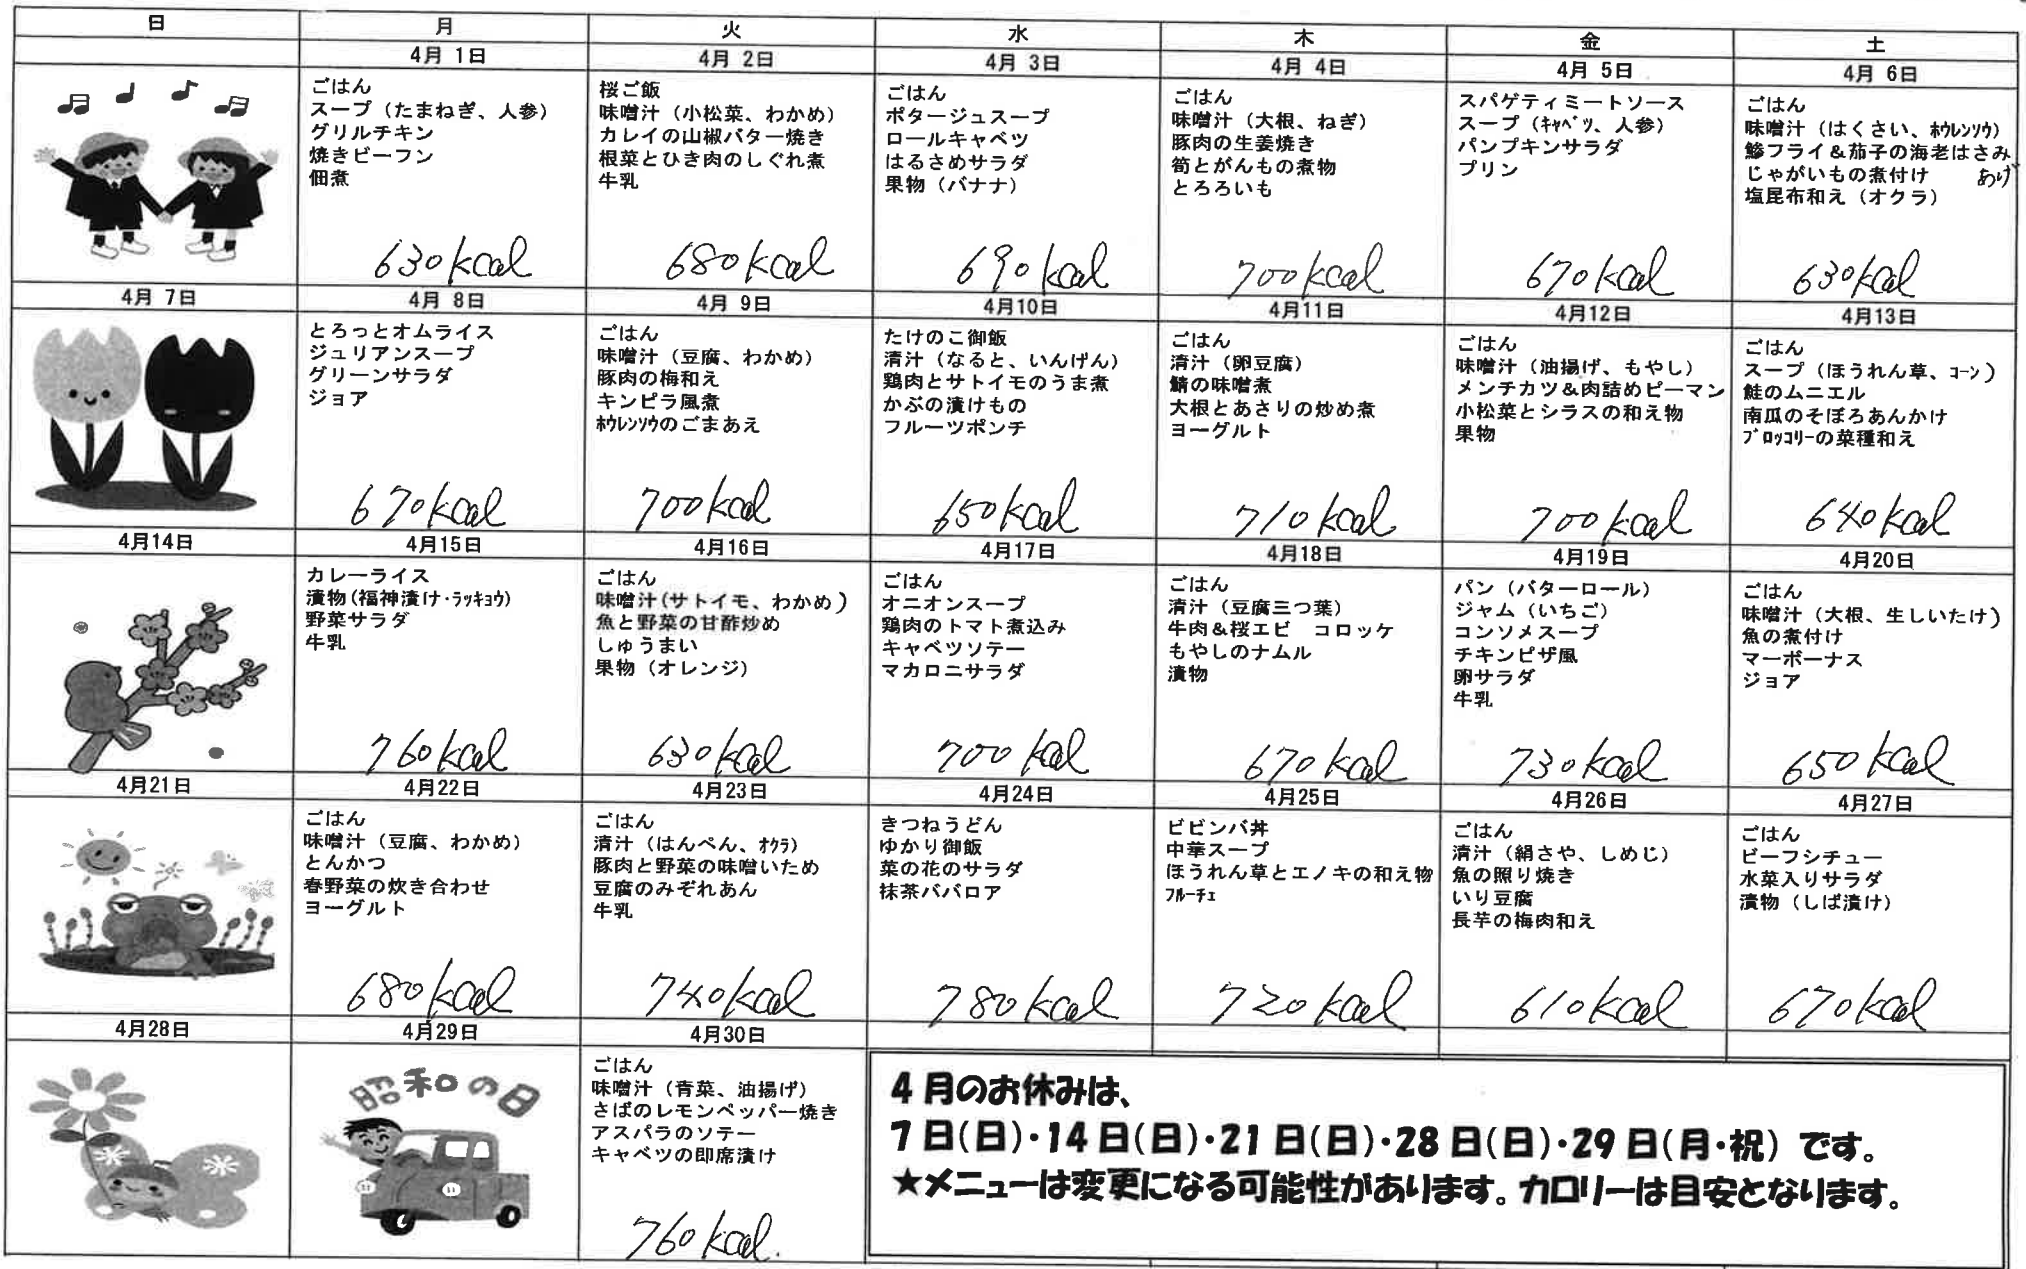 日 月 火 水 木 金 土
4月 1日 4月 2日 4月 3日 4月 4日 4月 5日 4月 6日
ごはん
スープ（たまねぎ、人参）
グリルチキン
焼きビーフン
佃煮
630kcal
桜ご飯
味噌汁（小松菜、わかめ）
カレイの山椒バター焼き
根菜とひき肉のしぐれ煮
牛乳
680kcal
ごはん
ポタージュスープ
ロールキャベツ
はるさめサラダ
果物（バナナ）
690kcal
ごはん
味噌汁（大根、ねぎ）
豚肉の生姜焼き
筍とがんもの煮物
とろろいも
700kcal
スパゲティミートソース
スープ（ｷｬﾍﾞﾂ、人参）
パンプキンサラダ
プリン
670kcal
ごはん
味噌汁（はくさい、ﾎｳﾚﾝｿｳ）
鯵フライ＆茄子の海老はさみ
じゃがいもの煮付け あげ
塩昆布和え（オクラ）
630kcal
4月 7日 4月 8日 4月 9日 4月10日 4月11日 4月12日 4月13日
とろっとオムライス
ジュリアンスープ
グリーンサラダ
ジョア
670kcal
ごはん
味噌汁（豆腐、わかめ）
豚肉の梅和え
キンピラ風煮
ﾎｳﾚﾝｿｳのごまあえ
700kcal
たけのこ御飯
清汁（なると、いんげん）
鶏肉とサトイモのうま煮
かぶの漬けもの
フルーツポンチ
650kcal
ごはん
清汁（卵豆腐）
鯖の味噌煮
大根とあさりの炒め煮
ヨーグルト
710kcal
ごはん
味噌汁（油揚げ、もやし）
メンチカツ＆肉詰めピーマン
小松菜とシラスの和え物
果物
700kcal
ごはん
スープ（ほうれん草、ｺｰﾝ）
鮭のムニエル
南瓜のそぼろあんかけ
ﾌﾞﾛｯｺﾘｰの菜種和え
640kcal
4月14日 4月15日 4月16日 4月17日 4月18日 4月19日 4月20日
カレーライス
漬物(福神漬け･ﾗｯｷｮｳ)
野菜サラダ
牛乳
760kcal
ごはん
味噌汁(サトイモ、わかめ）
魚と野菜の甘酢炒め
しゅうまい
果物（オレンジ）
630kcal
ごはん
オニオンスープ
鶏肉のトマト煮込み
キャベツソテー
マカロニサラダ
700kcal
ごはん
清汁（豆腐三つ葉）
牛肉＆桜エビ　コロッケ
もやしのナムル
漬物
670kcal
パン（バターロール）
ジャム（いちご）
コンソメスープ
チキンピザ風
卵サラダ
牛乳
730kcal
ごはん
味噌汁（大根、生しいたけ）
魚の煮付け
マーボーナス
ジョア
650kcal
4月21日 4月22日 4月23日 4月24日 4月25日 4月26日 4月27日
ごはん
味噌汁（豆腐、わかめ）
とんかつ
春野菜の炊き合わせ
ヨーグルト
680kcal
ごはん
清汁（はんぺん、ｵｸﾗ）
豚肉と野菜の味噌いため
豆腐のみぞれあん
牛乳
740kcal
きつねうどん
ゆかり御飯
菜の花のサラダ
抹茶ババロア
780kcal
ビビンバ丼
中華スープ
ほうれん草とエノキの和え物
ﾌﾙｰﾁｪ
720kcal
ごはん
清汁（絹さや、しめじ）
魚の照り焼き
いり豆腐
長芋の梅肉和え
610kcal
ごはん
ビーフシチュー
水菜入りサラダ
漬物（しば漬け）
670kcal
4月28日 4月29日 4月30日
昭和の日
ごはん
味噌汁（青菜、油揚げ）
さばのレモンペッパー焼き
アスパラのソテー
キャベツの即席漬け
760kcal.
4月のお休みは、
7日(日)・14日(日)・21日(日)・28日(日)・29日(月・祝）です。
★メニューは変更になる可能性があります。カロリーは目安となります。